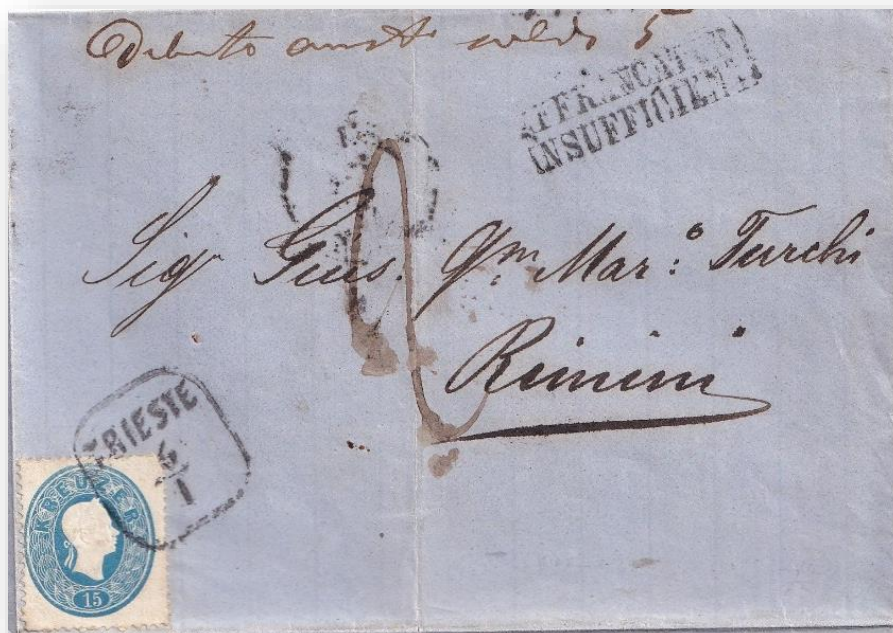 Debito aust soldi 5
AFFRANCATUR
INSUFFICIENT
Sig Gius. Qm Mar:o Turchi
Rimini
TRIESTE
6
1
KREUZER
15